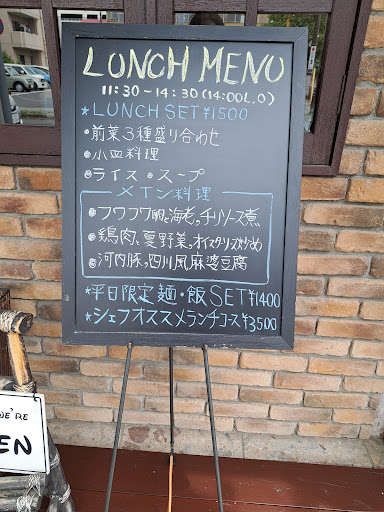 LUNCH MENU
11:30-14:30(14:00L.O)
★LUNCH SET ¥1500
・前菜3種盛り合わせ
・小皿料理
・ライス ・スープ
メイン料理
・フワフワ卵と海老のチリソース煮
・鶏肉と夏野菜のオイスターソース炒め
・河内豚の四川風麻婆豆腐
★平日限定麺・飯SET¥1400
★シェフオススメランチコース¥3500
WE'RE
EN